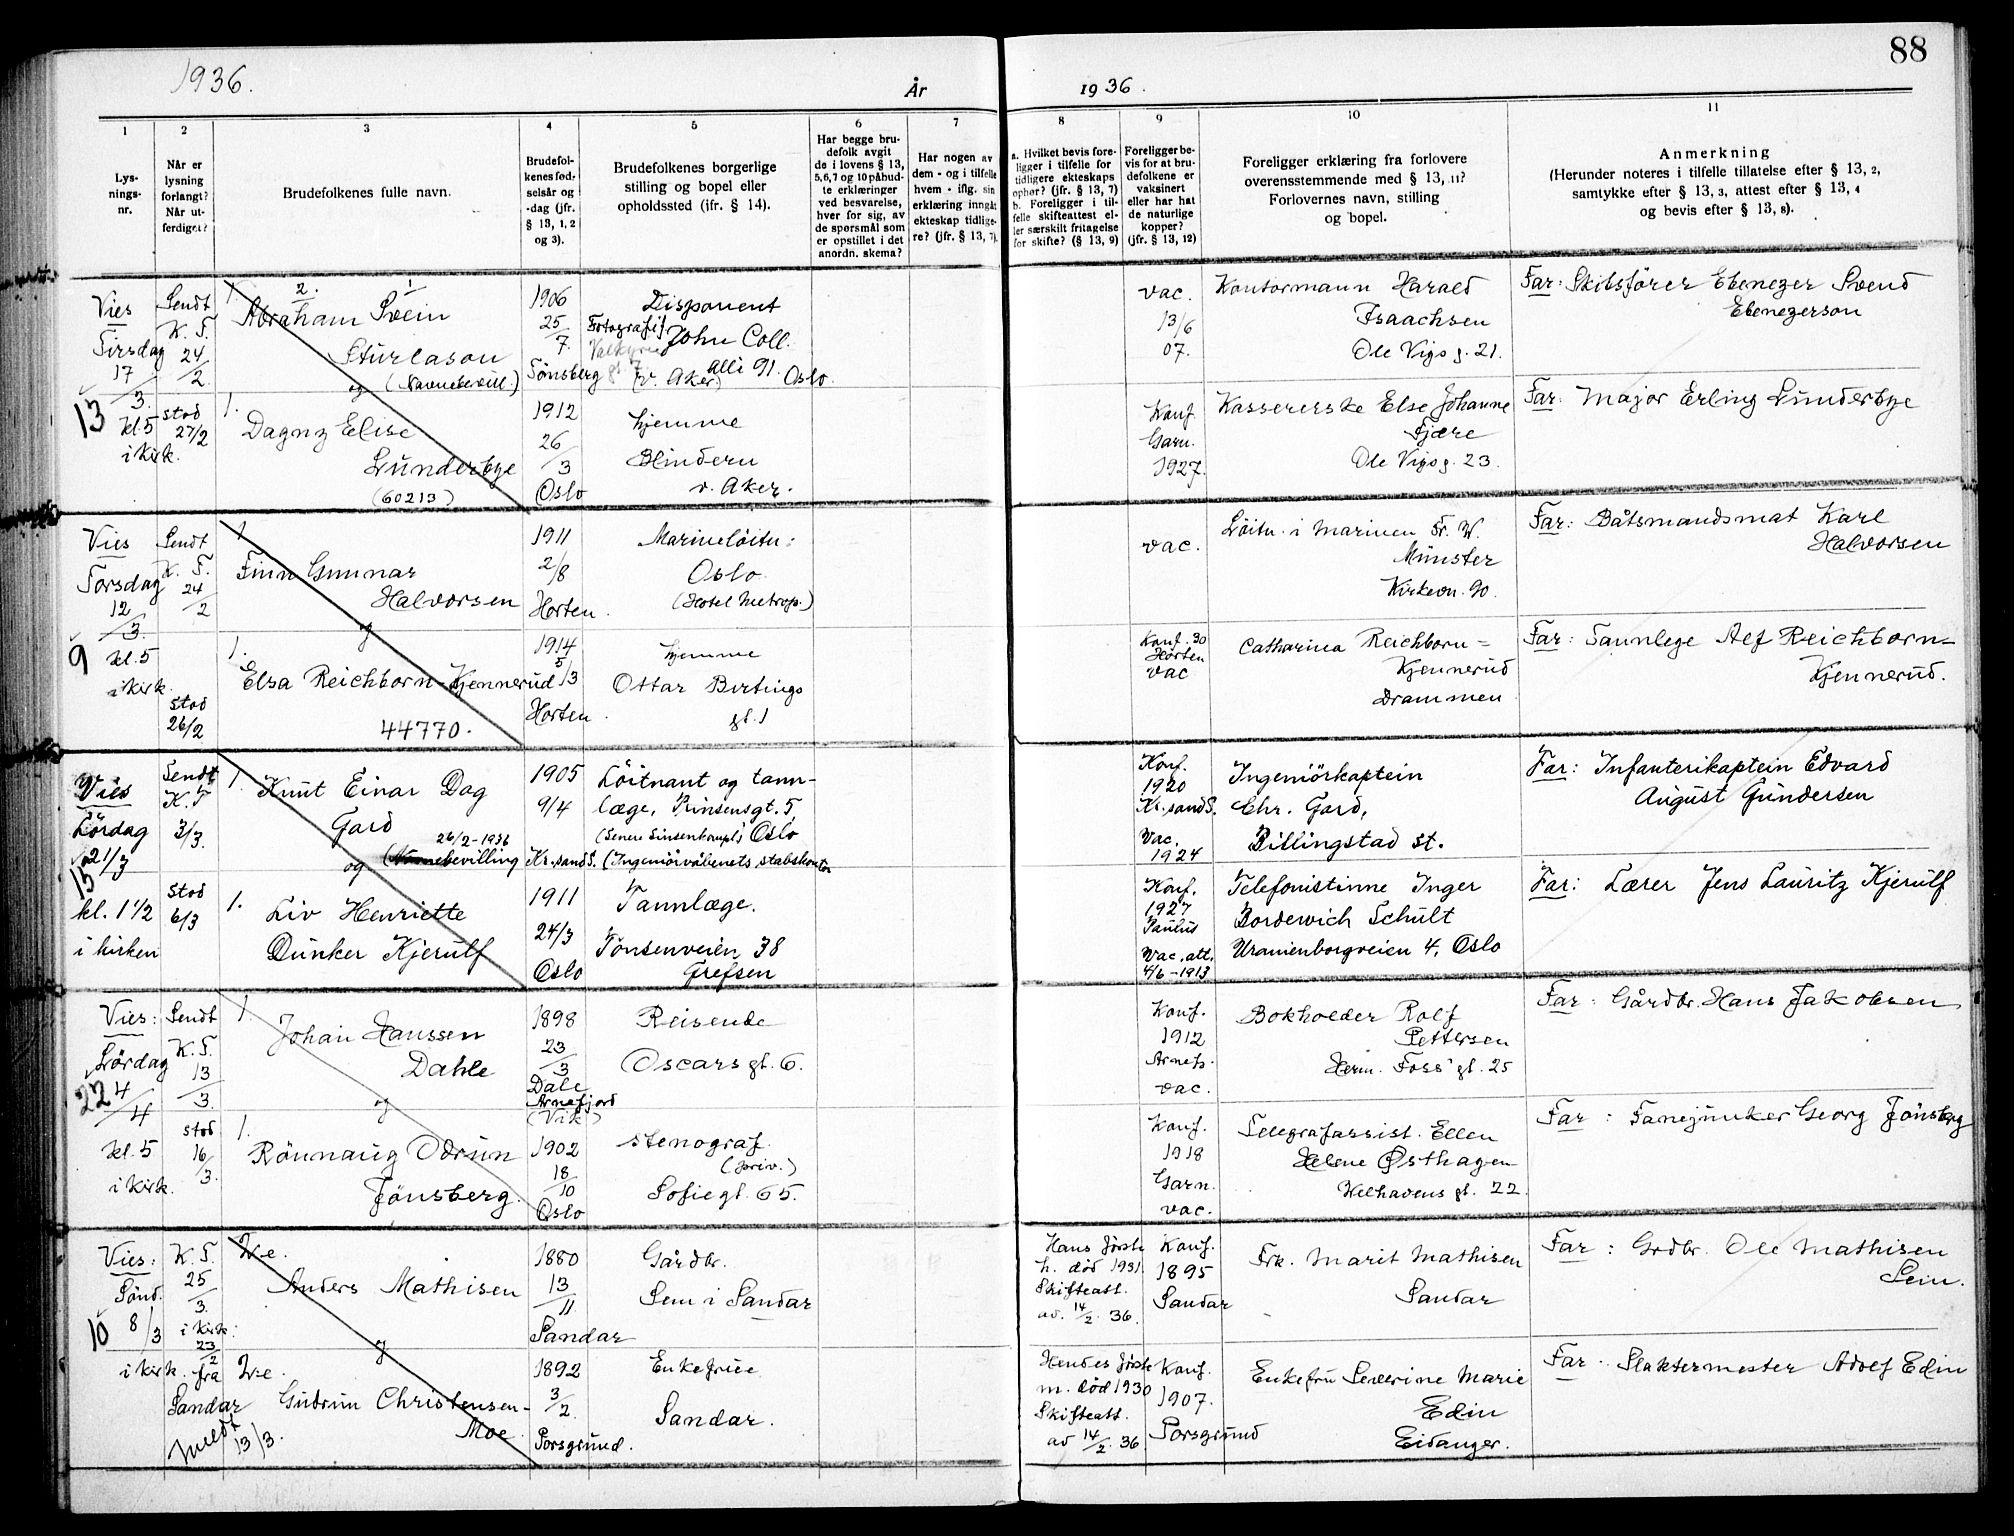 88
1936.
År
1936.
1
2
3
4
5
6
7
8
9
10
11
Lys-
nings-
nr.
Når er
lysning
forlangt?
Når ut-
ferdiget?
Brudefolkenes fulle navn.
Brudefol-
kenes fød-
selsår og
-dag (jfr.
§ 13, 1, 2
og 3).
Brudefolkenes borgerlige
stilling og bopel eller
opholdssted (jfr. § 14).
Har begge bru-
defolk avgit
de i lovens § 13,
5,6,7 og 10 påbud-
te erklæringer
ved besvarelse,
hver for sig, av
de spørsmål som
er opstillet i det
anordn. skema?
Har nogen av
dem - og i tilfelle
hvem - iflg. sin
erklæring inngått
ekteskap tidlige-
re? (jfr. § 13, 7).
a. Hvilket bevis fore-
ligger i tilfelle for
tidligere ekteskaps
ophør? (jfr. § 13, 7)
b. Foreligger i til-
felle skifteattest el-
ler særskilt fritagelse
for skifte? (§ 13, 9)
Foreligger be-
vis for at bru-
defolkene er
vaksinert
eller har hat
de naturlige
kopper?
(jfr. § 13, 12)
Foreligger erklæring fra forlovere
overensstemmende med § 13, 11?
Forlovernes navn, stilling
og bopel.
Anmerkning
(Herunder noteres i tilfelle tillatelse efter § 13, 2,
samtykke efter § 13, 3, attest efter § 13, 4
og bevis efter § 13, 8).
Vies
Tirsdag
17/3.
13
kl. 5
i kirk.
Sendt
K. T.
24/2.
stod
27/2
1.
2. 1
Abraham Svein
Sturlason
og (Navnebevill.)
1906
25/7.
Tønsberg
Disponent
Fotografif.
Valkyrie
John Coll.
alli 91.
(v. Aker) Oslo.
vac.
13/6
07.
Kontormann Harald
Isaachsen
Ole Vigs g. 21.
Far: Skibsfører Ebenezer Svend
Ebenezerson
1.
Dagny Elise
Lunderbye
(60213)
1912
26/3
Oslo
hjemme
Blindern
v. Aker.
Konf.
Garn.
1927.
Kassererske Else Johanne
Fjære
Ole Vigs g. 23.
Far: Major Erling Lunderbye
Vies
Torsdag
12/3.
9
kl. 5
i kirk.
Sendt
K. T.
24/2
stod
26/2
1
Finn Gunnar
Halvorsen
og
1911
2/8
Horten.
Marineløitn:
Oslo
(Hotel Metrop.)
vac.
Løitn. i Marinen Fr. W.
Münster
Kirkevn. 90.
Far: Båtsmandsmat Karl
Halvorsen
1.
Elsa Reichborn-Kjennerud
44770.
1914
5/3
Horten.
hjemme
Ottar Birtings
gt. 1
Konf. 30
Horten
vac
Catharina Reichborn=
Kjennerud
Drammen
Far: Tannlege Alf Reichborn=
Kjennerud.
Vies
Lördag
21/3
15
kl. 1 1/2
i kirken
Sendt
K. T
3/3.
stod
6/3
1.
Knut Einar Dag
Gard
26/2-1936
og (Navnebevilling
1905
9/4
Kr.sand S.
Löitnant og tann-
læge, Prinsensgt. 5,
Oslo
(Ingeniörvåbenets stabskontor
Konf.
1920
Kr.sand S.
Vac.
1924
Ingeniörkaptein
Chr. Gard,
Billingstad st.
Far: Infanterikaptein Edvard
August Gundersen
1.
Liv Henriette
Dunker Kjerulf
1911
24/3
Oslo
Tannlæge.
Tönsenveien 38
Grefsen
Konf.
1927
Paulus
Vac. att.
4/6-1913
Telefonistinne Inger
Bordewich Schult
Uranienborgveien 4, Oslo
Far: Lærer Jens Lauritz Kjerulf
Vies:
Lördag
4/4
22
kl. 5
i kirk.
Sendt
K. T.
13/3.
stod
16/3.
1.
Johan Hanssen
Dahle
og
1898
23/3
Dale
Arnafjord
(Vik)
Reisende
Oscars gt. 6.
Konf.
1912
Arnefj.
vac.
Bokholder Rolf
Pettersen
Herm. Foss' gt. 25
Far: Gårdbr. Hans Jakobsen
1.
Rönnaug Odrun
Jönsberg.
1902
18/10
Oslo
stenograf
(priv.)
Sofie gt. 65.
Konf.
1918
Garn.
vac.
Telegrafassist. Ellen
Helene Østhagen
Welhavens gt. 22.
Far: Fanejunker Georg Jönsberg
Vies:
Sönd.
8/3
10
i kirk.
K. T.
25/3.
i kirk.
23/2
fra
Sandar
meldt
13/3.
E.
Anders Mathisen
og
1880
13/11.
Sandar
Gårdbr.
Sem i Sandar
Hans første
h. död 1931.
Skifteatt.
av. 14/2. 36.
Konf.
1895
Sandar
Frk. Marit Mathisen
Sandar
Far: Grdbr. Ole Mathisen
Sem.
E.
Gudrun Christensen-
Moe
1892
3/2.
Porsgrund.
Enkefrue
Sandar.
Hendes første
m. död 1930
Skifteatt.
av 14/2. 36
Konf.
1907.
Porsgrund
Enkefru Severine Marie
Edin
Eidanger.
Far: Slaktermester Adolf Edin